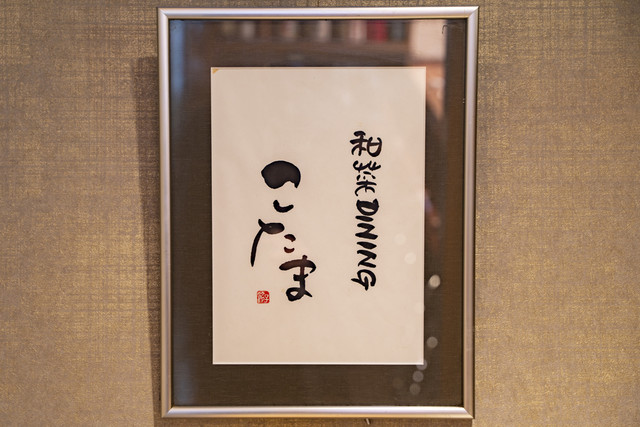 和菜DINING
こたま